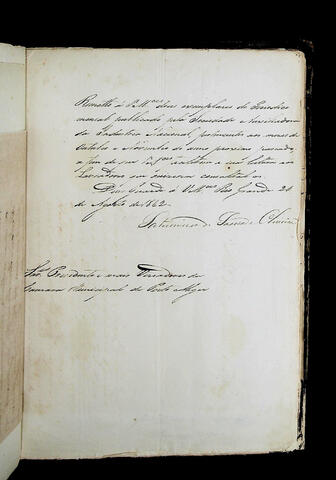 Remetto á V.Mces dous exemplares do Periodico
mensal publicado pela Sociedade Auxiliadora
da Industria Nacional, pertencentes aos mezes de
Outubro e Novembro do anno proximo passado,
a fim de que V.Mces
Lavradores que queirão consultal-os
Deus Guarde á V.Mces Rio Grande 20
de Agosto de 1862.
de Oliveira
Snrs. Presidente e mais Vereadores da
Camara Municipal de Porto Alegre